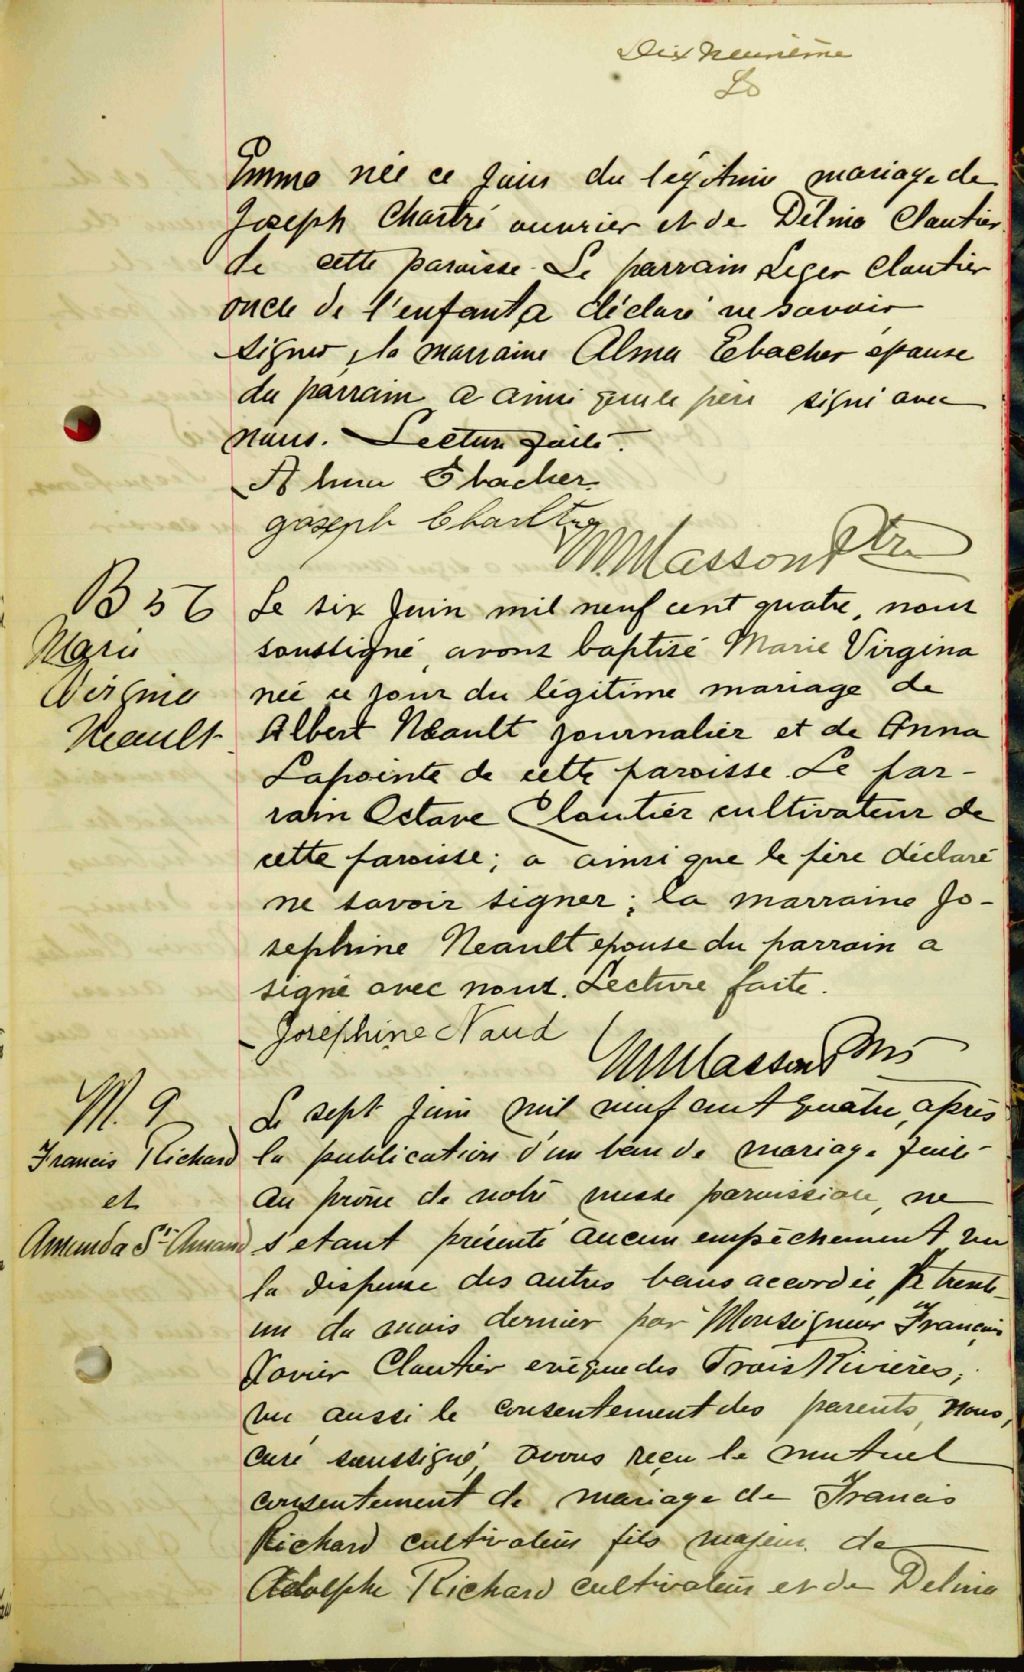 Dix neuvième
Emma née ce jour du légitime mariage de
Joseph Chartré ouvrier et de Délma Cloutier
de cette paroisse. Le parrain Leger Cloutier
oncle de l'enfant a déclaré ne savoir
signer, la marraine Alma Ebacher épouse
du parrain a ainsi que le père signé avec
nous. Lecture faite.
Alma Ebacher
Joseph Charltre
Masson Ptre
B 56
Marie
Virginia
Neault
Le six Juin mil neuf cent quatre, nous
soussigné, avons baptisé Marie Virgina
née ce jour du légitime mariage de
Albert Neault journalier et de Anna
Lapointe de cette paroisse. Le par-
rain Octave Cloutier cultivateur de
cette paroisse; a ainsi que le père déclaré
ne savoir signer; la marraine Jo-
sephine Neault epouse du parrain a
signé avec nous. Lecture faite.
Joséphine Naud
Masson Ptre
M. 9
Francis Richard
et
Amanda St-Amand
Le sept Juin mil neuf cent quatre, après
la publication d'un ban de mariage faite
au prône de notre messe paroissiale, ne
s'etant présenté aucun empêchement, vu
la dispense des autres bans accordée, le trente-
un du mois dernier par Monseigneur François
Xavier Cloutier evêque des Trois Rivières;
vu aussi le consentement des parents, Nous,
curé soussigné, avons reçu le mutuel
consentement de mariage de Francis
Richard cultivateur fils majeur de
Adolphe Richard cultivateur et de Delima